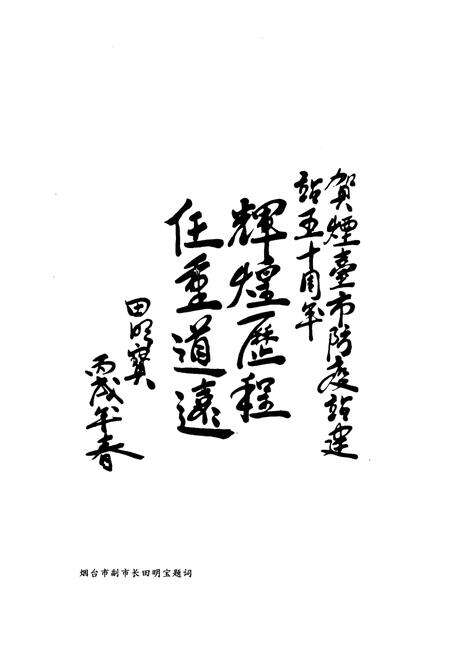 賀煙臺市防疫站建
站五十周年
輝煌歷程
任重道遠
田明寶
丙戌年春
烟台市副市长田明宝题词